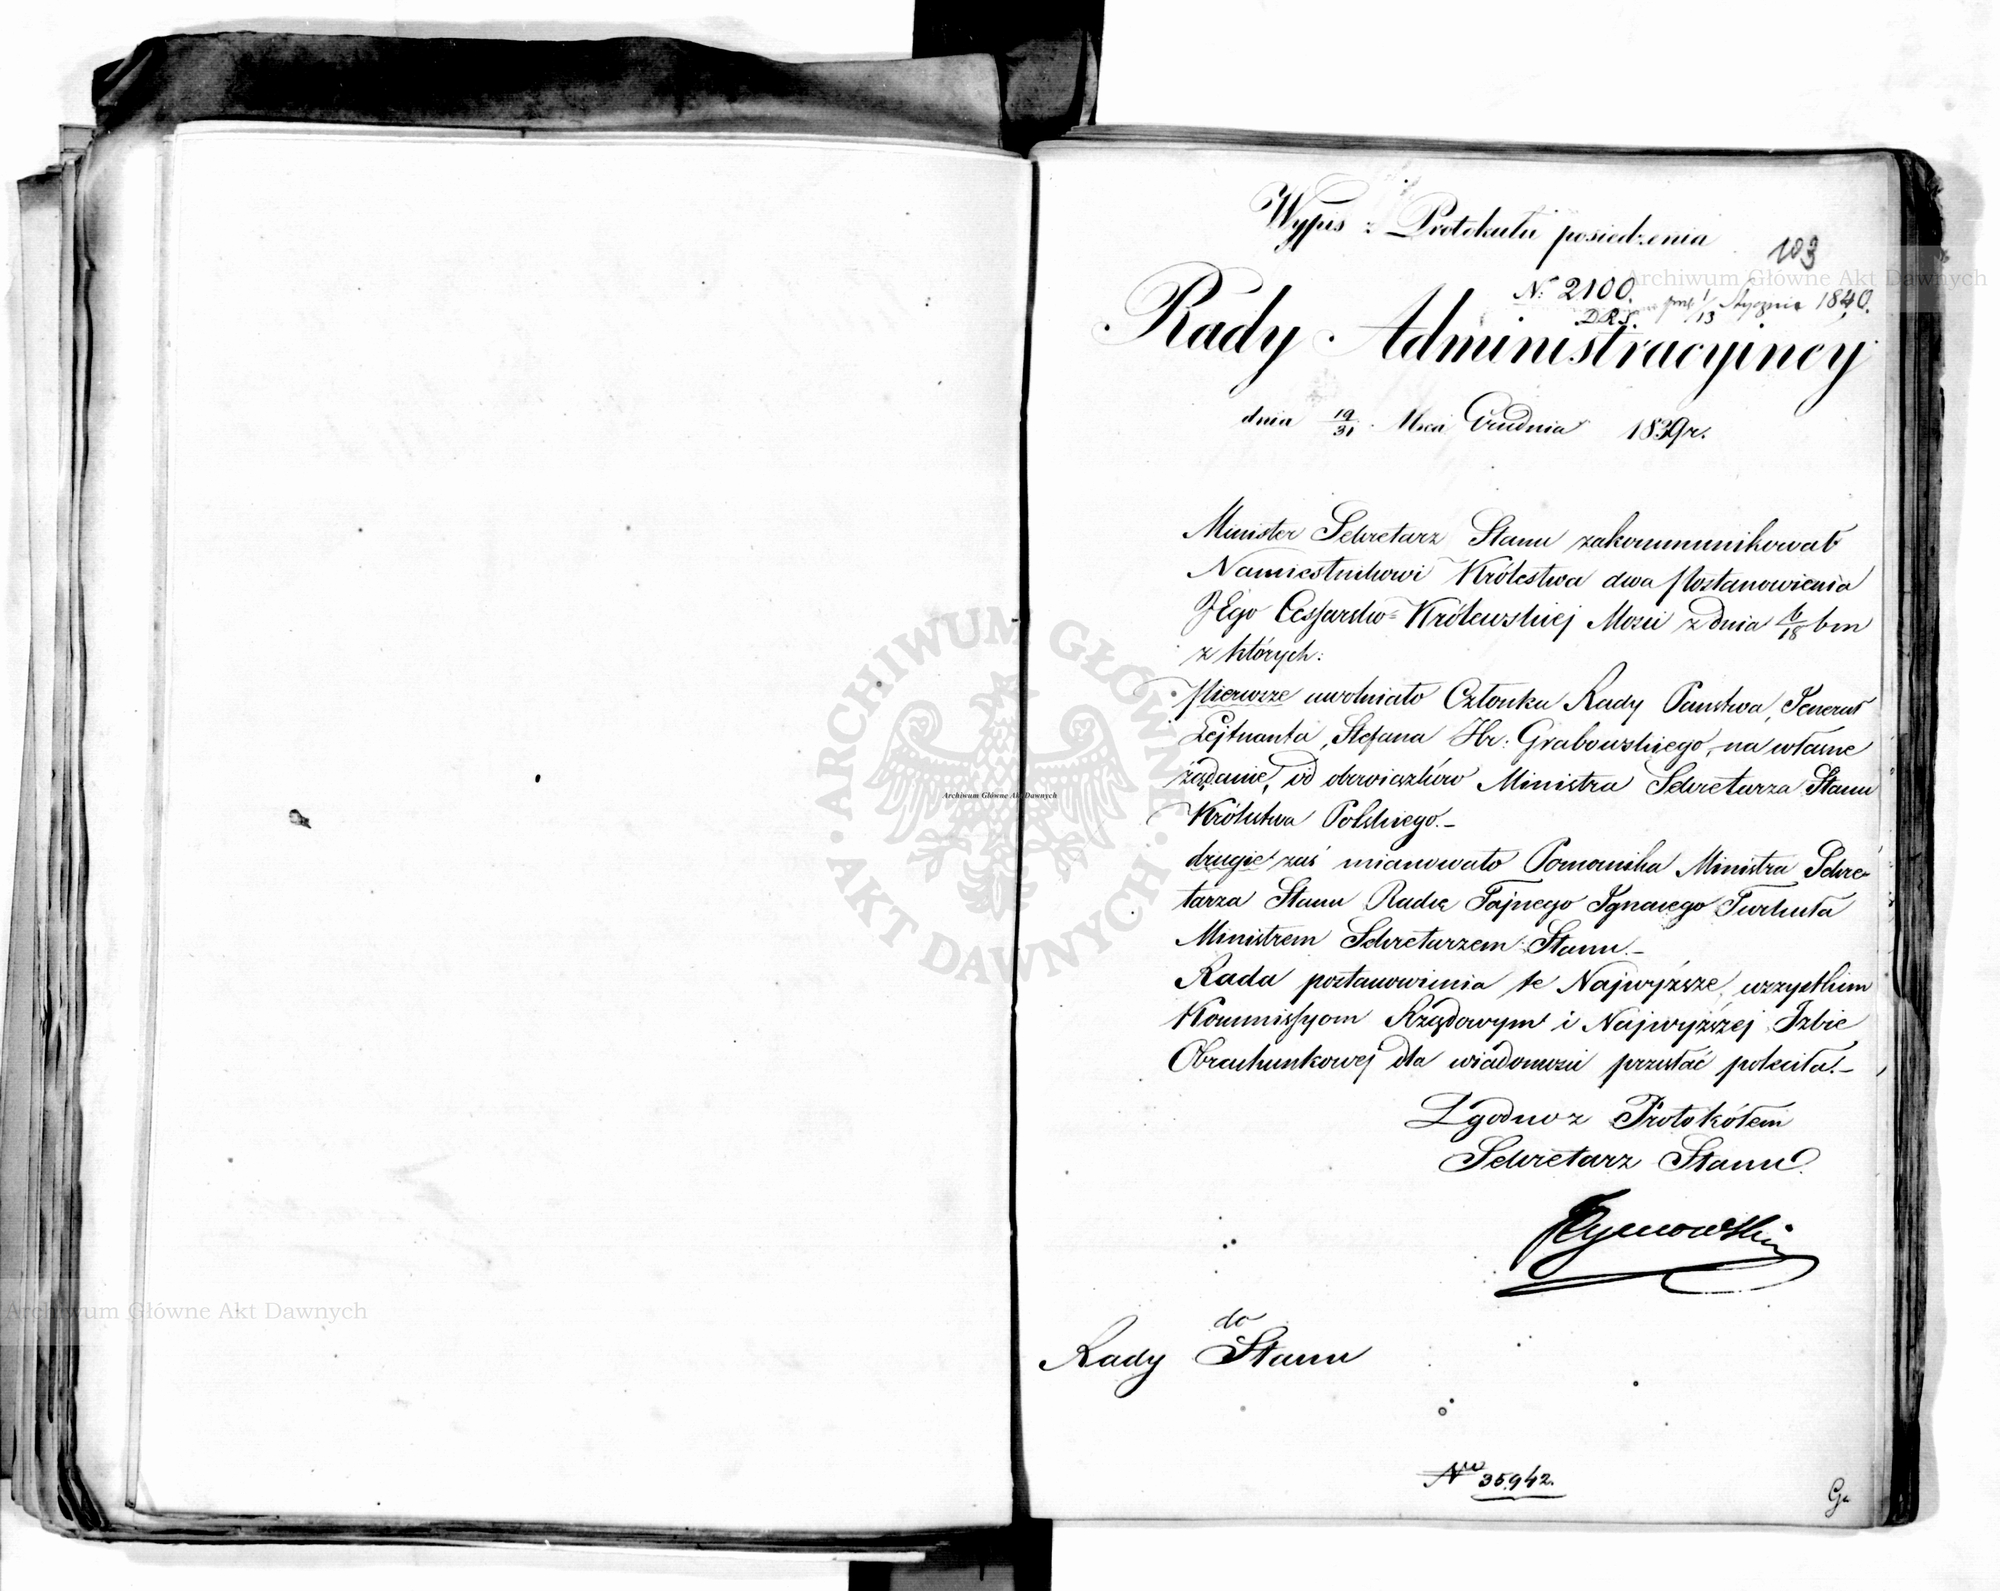 Wypis z Protokułu posiedzenia
103
N: 2100.
D.R.S. 1/13 Stycznia 1840.
Rady Administracyjney
dnia 19/31 Mca Grudnia 1839 r.
Minister Sekretarz Stanu zakommunikował
Namiestnikowi Królestwa dwa Postanowienia
JEgo Cesarsko=Królewskiej Mości z dnia 6/18 bm
z których:
Pierwsze uwolniało Członka Rady Państwa, Jenerał
Lejtnanta, Stefana Hr: Grabowskiego, na własne
żądanie, od obowiązków Ministra Sekretarza Stanu
Królestwa Polskiego.-
drugie zaś mianowało Pomocnika Ministra Sekre-
tarza Stanu Radcę Tajnego Ignacego Turkułła
Ministrem Sekretarzem Stanu.-
Rada postanowienia te Najwyższe, wszystkim
Kommissyom Rządowym i Najwyższej Izbie
Obrachunkowej dla wiadomości przesłać poleciła.-
Zgodno z Protokółem
Sekretarz Stanu
Tymowski
do
Rady Stanu
No 35942.
Archiwum Główne Akt Dawnych
Archiwum Główne Akt Dawnych
Archiwum Główne Akt Dawnych
ARCHIWUM GŁÓWNE AKT DAWNYCH